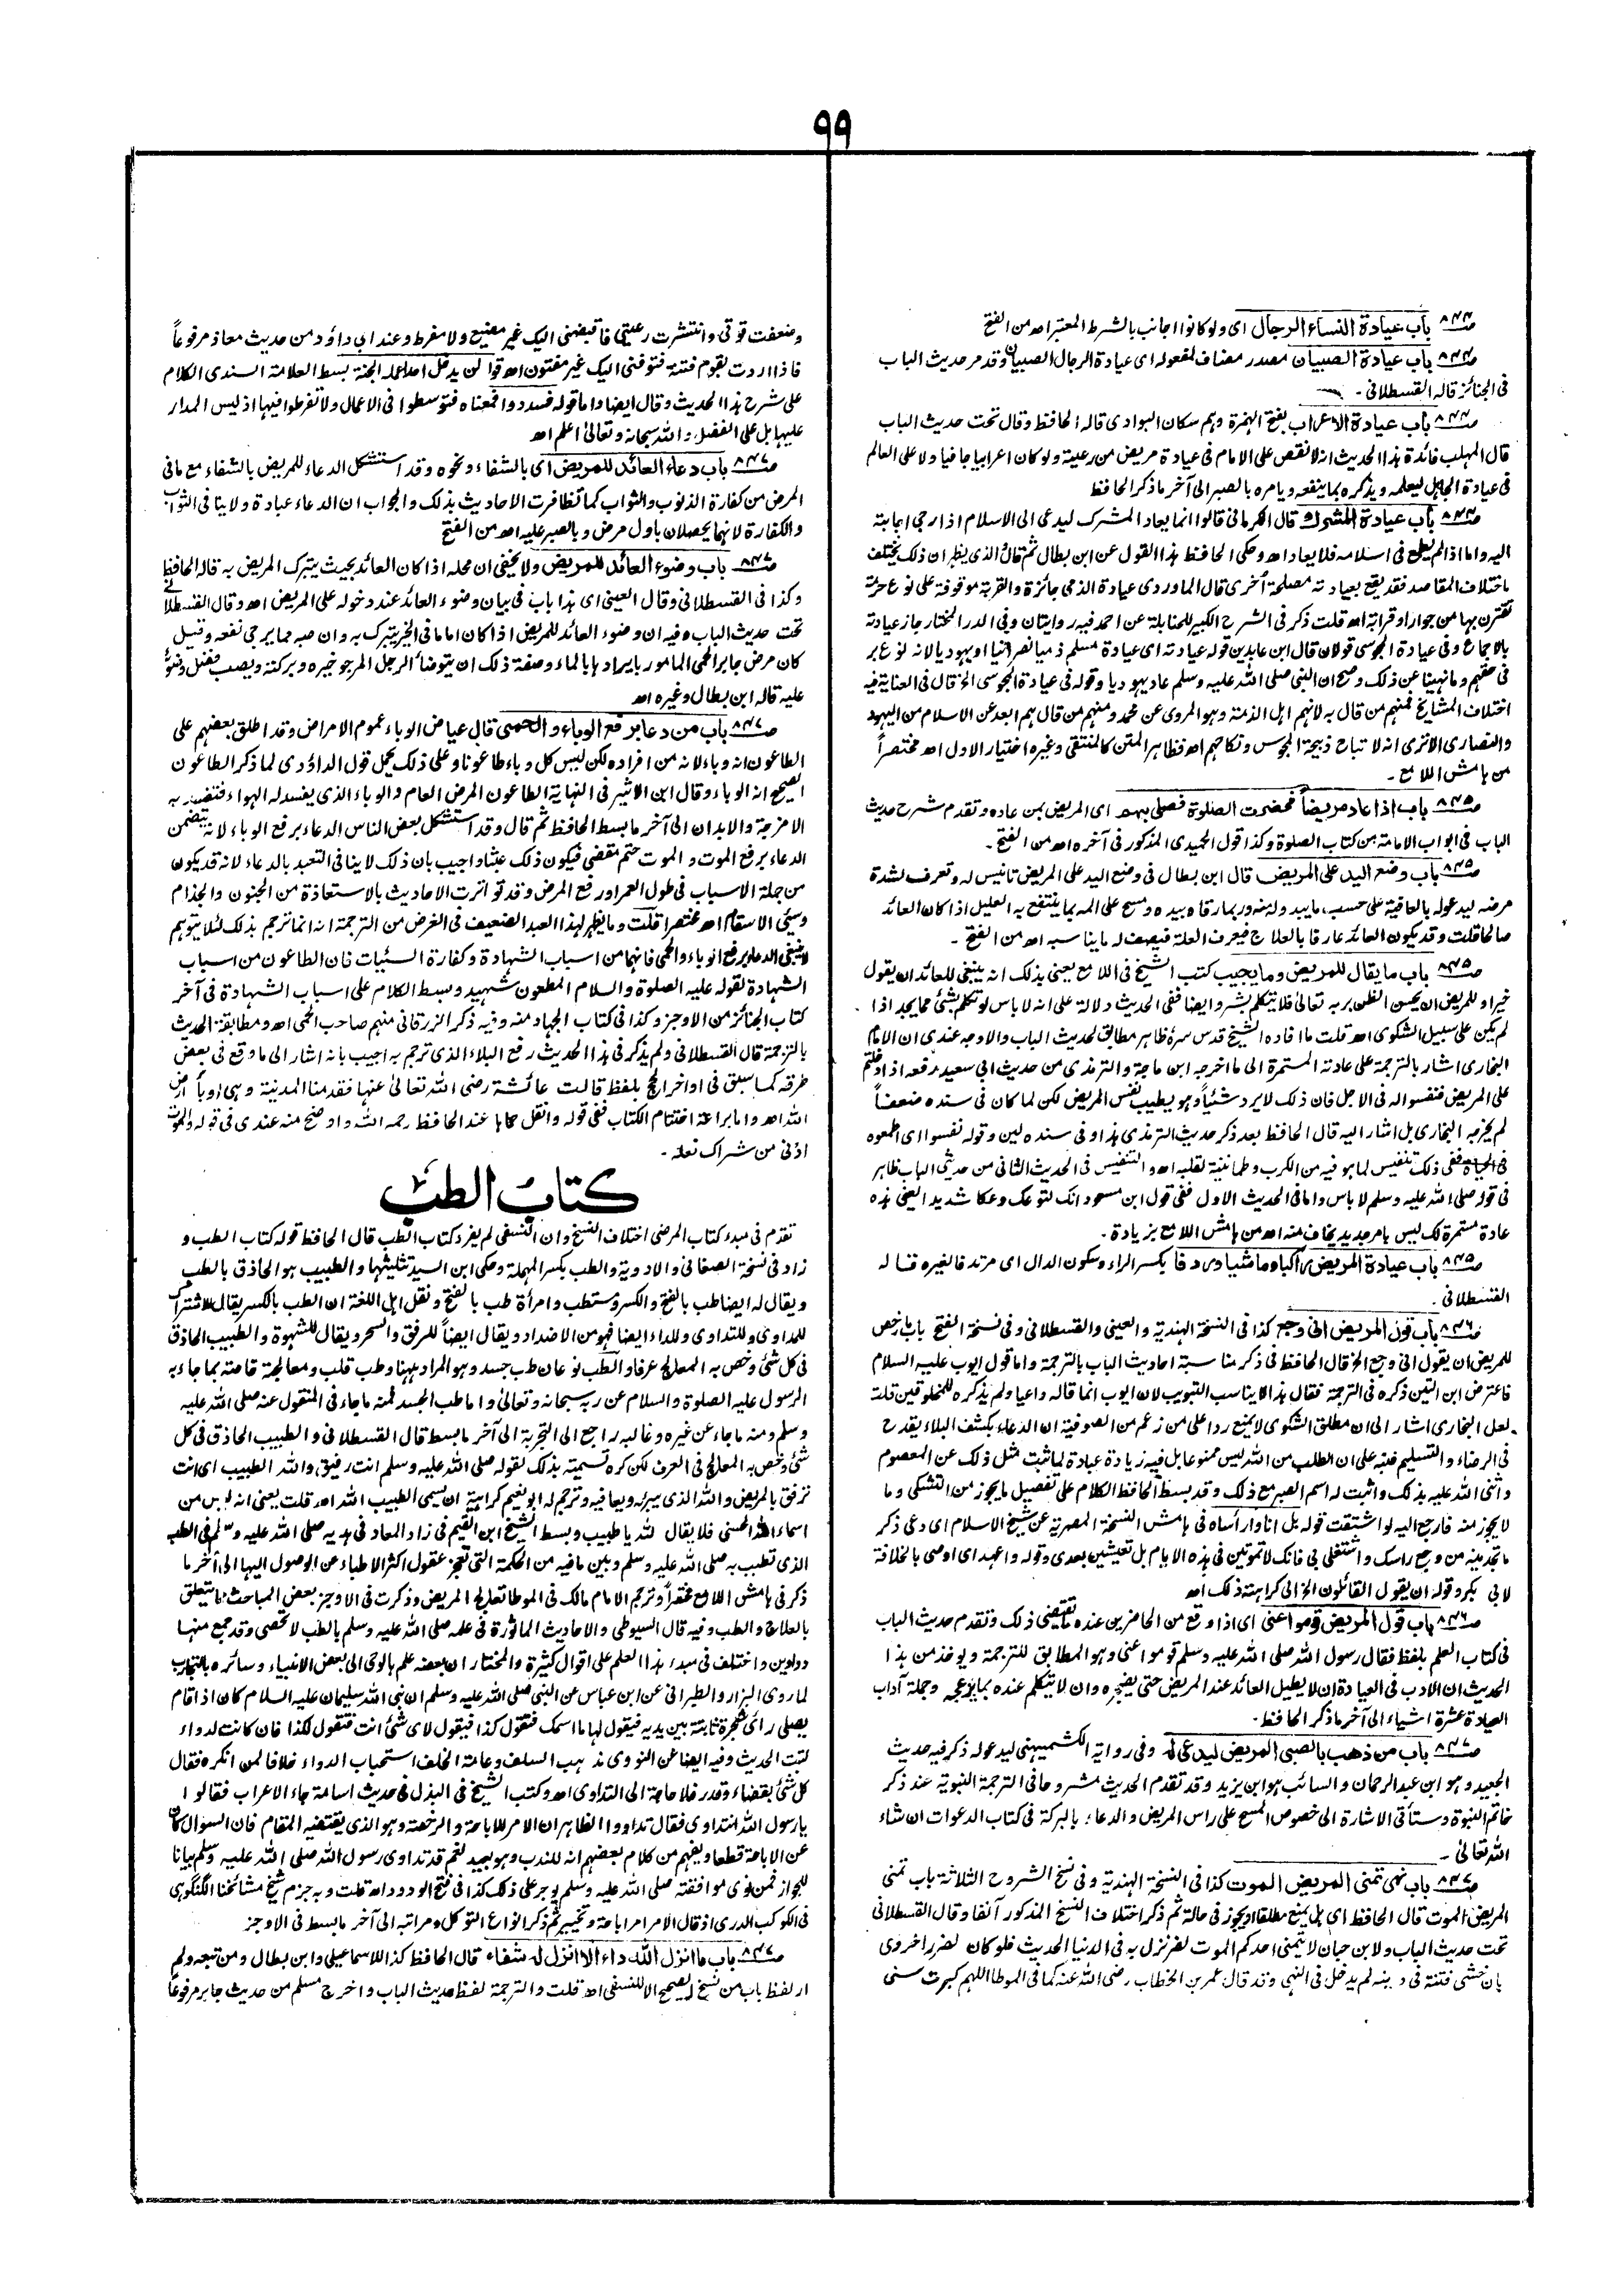 ٩٩
صـ٨٤٤ باب عيادة النساء الرجال اى ولو كانوا اجانب بالشرط المعتبر اهـ من الفتح
صـ٨٤٤ باب عيادة الصبيان مصدر مضاف لمفعوله اى عيادة الرجال الصبيان وقد مر حديث الباب
فى الجنائز قاله القسطلانى ـ
صـ٨٤٤ باب عيادة الاعراب بفتح الهمزة وهم سكان البوادى قاله الحافظ وقال تحت حديث الباب
قال المهلب فائدة هذا الحديث انه لا نقص على الامام فى عيادة مريض من رعيته ولو كان اعرابيا جافيا ولا على العالم
فى عيادة الجاهل ليعلمه ويذكره بما ينفعه ويامره بالصبر الى آخر ما ذكر الحافظ
صـ٨٤٤ باب عيادة المشرك قال الكرمانى قالوا انما يعاد المشرك ليدعى الى الاسلام اذا رجى اجابته
اليه واما اذا لم يطمع فى اسلامه فلا يعاد اهـ وحكى الحافظ هذا القول عن ابن بطال ثم قال والذى يظهر ان ذلك يختلف
باختلاف المقاصد فقد يقع بعيادته مصلحة أخرى قال الماوردى عيادة الذمى جائزة والقربة موقوفة على نوع حرمة
تقترن بها من جوار او قرابة اهـ قلت ذكر فى الشرح الكبير للحنابلة عن احمد فيه روايتان وفى الدر المختار جاز عيادته
بالاجماع وفى عيادة المجوسى قولان قال ابن عابدين قوله عيادته اى عيادة مسلم ذميا نصرانيا او يهوديا لانه نوع بر
فى حقهم وما نهينا عن ذلك وصح ان النبى صلى الله عليه وسلم عاد يهوديا وقوله فى عيادة المجوسى الخ قال فى العناية فيه
اختلاف المشايخ فمنهم من قال به لانهم اهل الذمة وهو المروى عن محمد ومنهم من قال هم ابعد عن الاسلام من اليهود
والنصارى الا ترى انه لا تباح ذبيحة المجوس ونكاحهم اهـ فظاهر المتن كالمنتقى وغيره اختيار الاول اهـ مختصراً
من هامش اللامع ـ
صـ٨٤٥ باب اذا عاد مريضاً فحضرت الصلوة فصلى بهم اى المريض بمن عاده وتقدم شرح حديث
الباب فى ابواب الامامة من كتاب الصلوة وكذا قول الحميدى المذكور فى آخره اهـ من الفتح ـ
صـ٨٤٥ باب وضع اليد على المريض قال ابن بطال فى وضع اليد على المريض تانيس له وتعرف لشدة
مرضه ليدعو له بالعافية على حسب ما يبدو له منه وربما رقاه بيده ومسح على المه بما ينتفع به العليل اذا كان العائد
صالحا قلت وقد يكون العائد عارفا بالعلاج فيعرف العلة فيصف له ما يناسبه اهـ من الفتح ـ
صـ٨٤٥ باب ما يقال للمريض وما يجيب كتب الشيخ فى اللامع يعنى بذلك انه ينبغى للعائد ان يقول
خيرا وللمريض ان يحسن الظن بربه تعالى فلا يتكلم بشر وايضا ففى الحديث دلالة على انه لا باس لو تكلم بشئ مما يجد اذا
لم يكن على سبيل الشكوى اهـ قلت ما افاده الشيخ قدس سره ظاهر مطابق لحديث الباب والاوجه عندى ان الامام
البخارى اشار بالترجمة على عادته المستمرة الى ما اخرجه ابن ماجة والترمذى من حديث ابى سعيد رفعه اذا دخلتم
على المريض فنفسوا له فى الاجل فان ذلك لا يرد شئياً وهو يطيب نفس المريض لكن لما كان فى سنده ضعفاً
لم يخرجه البخارى بل اشار اليه قال الحافظ بعد ذكر حديث الترمذى هذا وفى سنده لين وقوله نفسوا اى اطمعوه
فى الحياة ففى ذلك تنفيس لما هو فيه من الكرب وطمانينة لقلبه اهـ والتنفيس فى الحديث الثانى من حديثى الباب ظاهر
فى قوله صلى الله عليه وسلم لا باس واما فى الحديث الاول ففى قول ابن مسعود انك لتوعك وعكا شديدا يعنى هذه
عادة مستمرة لك ليس بامر جديد يخاف منه اهـ من هامش اللامع بزيادة ـ
صـ٨٤٥ باب عيادة المريض راكبا وماشيا وردفا بكسر الراء وسكون الدال اى مرتدفا لغيره قاله
القسطلانى ـ
صـ٨٤٦ باب قول المريض انى وجع كذا فى النسخة الهندية والعينى والقسطلانى وفى نسخة الفتح باب ما رخص
للمريض ان يقول انى وجع الخ قال الحافظ فى ذكر مناسبة احاديث الباب بالترجمة واما قول ايوب عليه السلام
فاعترض ابن التين ذكره فى الترجمة فقال هذا لا يناسب التبويب لان ايوب انما قاله داعيا ولم يذكره للمخلوقين قلت
لعل البخارى اشار الى ان مطلق الشكوى لا يمنع ردا على من زعم من الصوفية ان الدعاء بكشف البلاء يقدح
فى الرضاء والتسليم فنبه على ان الطلب من الله ليس ممنوعا بل فيه زيادة عبادة لما ثبت مثل ذلك عن المعصوم
واثنى الله عليه بذلك واثبت له اسم الصبر مع ذلك وقد بسط الحافظ الكلام على تفصيل ما يجوز من التشكى وما
لا يجوز منه فارجع اليه لو اشتقت قوله بل انا وا رأساه فى هامش النسخة المصرية عن شيخ الاسلام اى دعى ذكر
ما تجدينه من وجع راسك واشتغلى بى فانك لا تموتين فى هذه الايام بل تعيشين بعدى وقوله واعهد اى اوصى بالخلافة
لابى بكر وقوله ان يقول القائلون الخ اى كراهة ذلك اهـ
صـ٨٤٦ باب قول المريض قوموا عنى اى اذا وقع من الحاضرين عنده ما يقتضى ذلك وتقدم حديث الباب
فى كتاب العلم بلفظ فقال رسول الله صلى الله عليه وسلم قوموا عنى وهو المطابق للترجمة ويوخذ من هذا
الحديث ان الادب فى العيادة ان لا يطيل العائد عند المريض حتى يضجره وان لا يتكلم عنده بما يزعجه وجملة آداب
العيادة عشرة اشياء الى آخر ما ذكر الحافظ ـ
صـ٨٤٧ باب من ذهب بالصبى المريض ليدعى له وفى رواية الكشميهنى ليدعو له ذكر فيه حديث
الجعيد وهو ابن عبد الرحمان والسائب هو ابن يزيد وقد تقدم الحديث مشروحا فى الترجمة النبوية عند ذكر
خاتم النبوة وستأتى الاشارة الى خصوص المسح على راس المريض والدعاء بالبركة فى كتاب الدعوات ان شاء
الله تعالى ـ
صـ٨٤٧ باب نهى تمنى المريض الموت كذا فى النسخة الهندية وفى نسخ الشروح الثلاثة باب تمنى
المريض الموت قال الحافظ اى هل يمنع مطلقا او يجوز فى حالة ثم ذكر اختلاف النسخ المذكور آنفا وقال القسطلانى
تحت حديث الباب ولابن حبان لا يتمنى احدكم الموت لضر نزل به فى الدنيا الحديث فلو كان لضر اخروى
بان خشى فتنة فى دينه لم يدخل فى النهى وقد قال عمر بن الخطاب رضى الله عنه كما فى الموطا اللهم كبرت سنى
وضعفت قوتى وانتشرت رعيتى فاقبضنى اليك غير مضيع ولا مفرط وعند ابى داؤد من حديث معاذ مرفوعاً
فاذا اردت بقوم فتنة فتوفنى اليك غير مفتون اهـ قوله لن يدخل احدا عمله الجنة بسط العلامة السندى الكلام
على شرح هذا الحديث وقال ايضا واما قوله فسددوا فمعناه فتوسطوا فى الاعمال ولا تفرطوا فيها اذ ليس المدار
عليها بل على الفضل والله سبحانه وتعالى اعلم اهـ
صـ٨٤٧ باب دعاء العائد للمريض اى بالشفاء ونحوه وقد استشكل الدعاء للمريض بالشفاء مع ما فى
المرض من كفارة الذنوب والثواب كما تظافرت الاحاديث بذلك والجواب ان الدعاء عبادة ولا ينافى الثواب
والكفارة لانهما يحصلان باول مرض وبالصبر عليه اهـ من الفتح
صـ٨٤٧ باب وضوء العائد للمريض ولا يخفى ان محله اذا كان العائد بحيث يتبرك المريض به قاله الحافظ
وكذا فى القسطلانى وقال العينى اى هذا باب فى بيان وضوء العائد عند دخوله على المريض اهـ وقال القسطلانى
تحت حديث الباب وفيه ان وضوء العائد للمريض اذا كان اماما فى الخير يتبرك به وان صبه مما يرجى نفعه وقيل
كان مرض جابر الحمى المامور بابرادها بالماء وصفة ذلك ان يتوضأ الرجل المرجو خيره وبركته ويصب فضل وضوئه
عليه قاله ابن بطال وغيره اهـ
صـ٨٤٧ باب من دعا برفع الوباء والحمى قال عياض الوباء عموم الامراض وقد اطلق بعضهم على
الطاعون انه وباء لانه من افراده لكن ليس كل وباء طاعونا وعلى ذلك يحمل قول الداؤدى لما ذكر الطاعون
الصحيح انه الوباء وقال ابن الاثير فى النهاية الطاعون المرض العام والوباء الذى يفسد له الهواء فتفسد به
الامزجة والابدان الى آخر ما بسط الحافظ ثم قال وقد استشكل بعض الناس الدعاء برفع الوباء لانه يتضمن
الدعاء برفع الموت والموت حتم مقضى فيكون ذلك عبثا واجيب بان ذلك لا ينافى التعبد بالدعاء لانه قد يكون
من جملة الاسباب فى طول العمر او رفع المرض وقد تواترت الاحاديث بالاستعاذة من الجنون والجذام
وسيئى الاسقام اهـ مختصرا قلت وما يظهر لهذا العبد الضعيف فى الغرض من الترجمة انه انما ترجم بذلك لئلا يتوهم
لا ينبغى الدعاء برفع الوباء والحمى فانهما من اسباب الشهادة وكفارة السئيات فان الطاعون من اسباب
الشهادة لقوله عليه الصلوة والسلام المطعون شهيد وبسط الكلام على اسباب الشهادة فى آخر
كتاب الجنائز من الاوجز وكذا فى كتاب الجهاد منه وفيه ذكر الزرقانى منهم صاحب الحمى اهـ ومطابقة الحديث
بالترجمة قال القسطلانى ولم يذكر فى هذا الحديث رفع البلاء الذى ترجم به اجيب بانه اشار الى ما وقع فى بعض
طرقه كما سبق فى اواخر الحج بلفظ قالت عائشة رضى الله تعالى عنها فقدمنا المدينة وهى اوبأ ارض
الله اهـ واما براعة اختتام الكتاب ففى قوله وانقل حماها عند الحافظ رحمه الله واوضح منه عندى فى قوله والموت
ادنى من شراك نعله ـ
كتاب الطب
تقدم فى مبدء كتاب المرضى اختلاف النسخ وان النسفى لم يفرد كتاب الطب قال الحافظ قوله كتاب الطب و
زاد فى نسخة الصغانى والادوية والطب بكسر المهملة وحكى ابن السيد تثليثها والطبيب هو الحاذق بالطب
ويقال له ايضا طب بالفتح والكسر ومستطب وامرأة طب بالفتح ونقل اهل اللغة ان الطب بالكسر يقال للاشتراك
للمداوى وللتداوى وللداء ايضا فهو من الاضداد ويقال ايضاً للرفق والسحر ويقال للشهوة والطبيب الحاذق
فى كل شئ وخص به المعالج عرفا والطب نوعان طب جسد وهو المراد ههنا وطب قلب ومعالجة خاصة بما جاء به
الرسول عليه الصلوة والسلام عن ربه سبحانه وتعالى واما طب الجسد فمنه ما جاء فى المنقول عنه صلى الله عليه
وسلم ومنه ما جاء عن غيره وغالبه راجع الى التجربة الى آخر ما بسط قال القسطلانى والطبيب الحاذق فى كل
شئ وخص به المعالج فى العرف لكن كره تسميته بذلك لقوله صلى الله عليه وسلم انت رفيق والله الطبيب اى انت
ترفق بالمريض والله الذى يبرئه ويعافيه وترجم له ابو نعيم كراهية ان يسمى الطبيب الله اهـ قلت يعنى انه ليس من
اسماء الله الحسنى فلا يقال لله يا طبيب وبسط الشيخ ابن القيم فى زاد المعاد فى هديه صلى الله عليه وسلم فى الطب
الذى تطبب به صلى الله عليه وسلم وبين ما فيه من الحكمة التى تعجز عقول اكثر الاطباء عن الوصول اليها الى آخر ما
ذكر فى هامش اللامع مختصراً وترجم الامام مالك فى الموطا تعالج المريض وذكرت فى الاوجز بعض المباحث مما يتعلق
بالعلاج والطب وفيه قال السيوطى والاحاديث الماثورة فى علمه صلى الله عليه وسلم بالطب لا تحصى وقد جمع منها
دواوين واختلف فى مبدء هذا العلم على اقوال كثيرة والمختار ان بعضه علم بالوحى الى بعض الانبياء وسائره بالتجارب
لما روى البزار والطبرانى عن ابن عباس عن النبى صلى الله عليه وسلم ان نبى الله سليمان عليه السلام كان اذا قام
يصلى رأى شجرة ثابتة بين يديه فيقول لها ما اسمك فتقول كذا فيقول لاى شئ انت فتقول لكذا فان كانت لدواء
كتبت الحديث وفيه ايضا عن النووى مذهب السلف وعامة الخلف استحباب الدواء خلافا لمن انكره فقال
كل شئ بقضاء وقدر فلا حاجة الى التداوى اهـ وكتب الشيخ فى البذل فى حديث اسامة جاء الاعراب فقالوا
يا رسول الله انتداوى فقال تداووا الظاهر ان الامر للاباحة والرخصة وهو الذى يقتضيه المقام فان السوال كان
عن الاباحة قطعا ويفهم من كلام بعضهم انه للندب وهو بعيد نعم قد تداوى رسول الله صلى الله عليه وسلم بيانا
للجواز فمن نوى موافقته صلى الله عليه وسلم يوجر على ذلك كذا فى فتح الودود اهـ قلت وبه جزم شيخ مشائخنا الگنگوہی
فى الكوكب الدرى اذ قال الامر امر اباحة وتخيير ثم ذكر انواع التوكل ومراتبه الى آخر ما بسط فى الاوجز
صـ٨٤٧ باب ما انزل الله داء الا انزل له شفاء قال الحافظ كذا للاسماعيلى وابن بطال ومن تبعه ولم
ار لفظ باب من نسخ الصحيح الا للنسفى اهـ قلت والترجمة لفظ حديث الباب واخرج مسلم من حديث جابر مرفوعاً